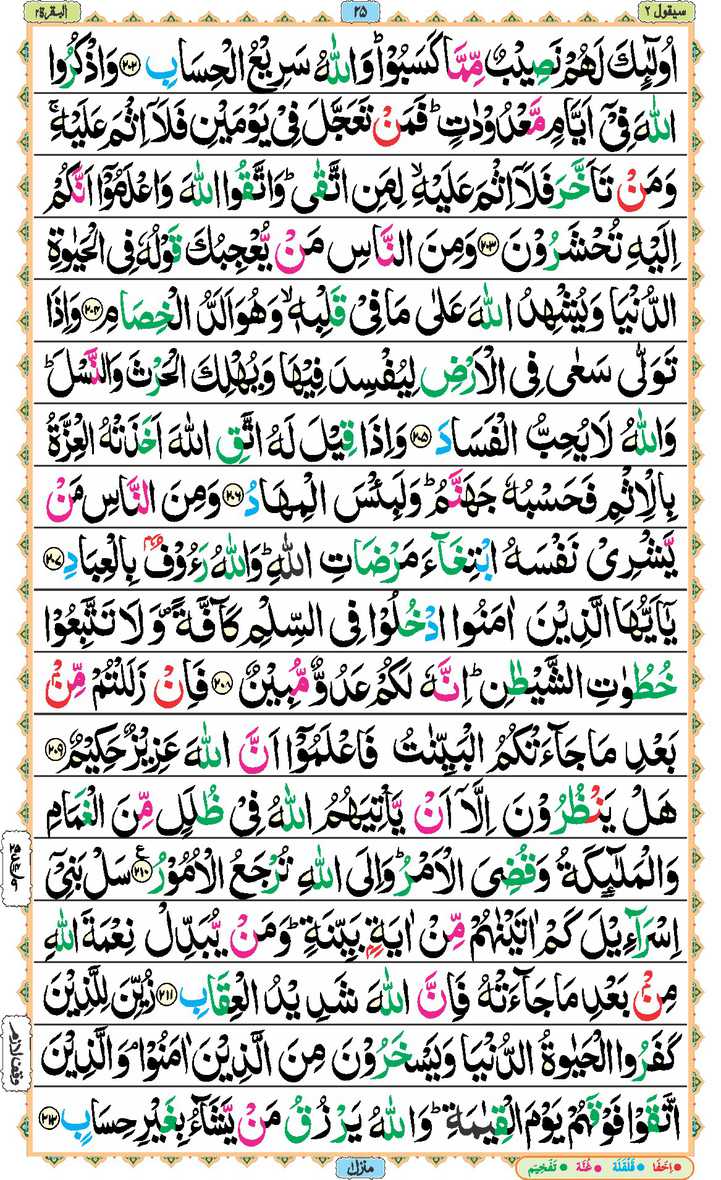 سيقول ٢
٢٥
البقرة ٢
اُولٰٓئِكَ لَهُمْ نَصِيْبٌ مِّمَّا كَسَبُوْا ؕ وَاللّٰهُ سَرِيْعُ الْحِسَابِ ﴿۲۰۲﴾ وَاذْكُرُوا
اللّٰهَ فِىْٓ اَيَّامٍ مَّعْدُوْدٰتٍ ؕ فَمَنْ تَعَجَّلَ فِىْ يَوْمَيْنِ فَلَاۤ اِثْمَ عَلَيْهِ ۚ
وَمَنْ تَاَخَّرَ فَلَاۤ اِثْمَ عَلَيْهِ ۙ لِمَنِ اتَّقٰى ؕ وَاتَّقُوا اللّٰهَ وَاعْلَمُوْٓا اَنَّكُمْ
اِلَيْهِ تُحْشَرُوْنَ ﴿۲۰۳﴾ وَمِنَ النَّاسِ مَنْ يُّعْجِبُكَ قَوْلُهٗ فِى الْحَيٰوةِ
الدُّنْيَا وَيُشْهِدُ اللّٰهَ عَلٰى مَا فِىْ قَلْبِهٖ ۙ وَهُوَ اَلَدُّ الْخِصَامِ ﴿۲۰۴﴾ وَاِذَا
تَوَلّٰى سَعٰى فِى الْاَرْضِ لِيُفْسِدَ فِيْهَا وَيُهْلِكَ الْحَرْثَ وَالنَّسْلَ ؕ
وَاللّٰهُ لَا يُحِبُّ الْفَسَادَ ﴿۲۰۵﴾ وَاِذَا قِيْلَ لَهُ اتَّقِ اللّٰهَ اَخَذَتْهُ الْعِزَّةُ
بِالْاِثْمِ فَحَسْبُهٗ جَهَنَّمُ ؕ وَلَبِئْسَ الْمِهَادُ ﴿۲۰۶﴾ وَمِنَ النَّاسِ مَنْ
يَّشْرِىْ نَفْسَهُ ابْتِغَآءَ مَرْضَاتِ اللّٰهِ ؕ وَاللّٰهُ رَءُوْفٌۢ بِالْعِبَادِ ﴿۲۰۷﴾
يٰٓاَيُّهَا الَّذِيْنَ اٰمَنُوا ادْخُلُوْا فِى السِّلْمِ كَآفَّةً ۪ وَلَا تَتَّبِعُوْا
خُطُوٰتِ الشَّيْطٰنِ ؕ اِنَّهٗ لَكُمْ عَدُوٌّ مُّبِيْنٌ ﴿۲۰۸﴾ فَاِنْ زَلَلْتُمْ مِّنْۢ
بَعْدِ مَا جَآءَتْكُمُ الْبَيِّنٰتُ فَاعْلَمُوْٓا اَنَّ اللّٰهَ عَزِيْزٌ حَكِيْمٌ ﴿۲۰۹﴾
هَلْ يَنْظُرُوْنَ اِلَّاۤ اَنْ يَّاْتِيَهُمُ اللّٰهُ فِىْ ظُلَلٍ مِّنَ الْغَمَامِ
وَالْمَلٰٓئِكَةُ وَقُضِىَ الْاَمْرُ ؕ وَاِلَى اللّٰهِ تُرْجَعُ الْاُمُوْرُ ﴿۲۱۰﴾ ع سَلْ بَنِىْٓ
اِسْرَآءِيْلَ كَمْ اٰتَيْنٰهُمْ مِّنْ اٰيَةٍۢ بَيِّنَةٍ ؕ وَمَنْ يُّبَدِّلْ نِعْمَةَ اللّٰهِ
مِنْۢ بَعْدِ مَا جَآءَتْهُ فَاِنَّ اللّٰهَ شَدِيْدُ الْعِقَابِ ﴿۲۱۱﴾ زُيِّنَ لِلَّذِيْنَ
كَفَرُوا الْحَيٰوةُ الدُّنْيَا وَيَسْخَرُوْنَ مِنَ الَّذِيْنَ اٰمَنُوْا ۘ وَالَّذِيْنَ
اتَّقَوْا فَوْقَهُمْ يَوْمَ الْقِيٰمَةِ ؕ وَاللّٰهُ يَرْزُقُ مَنْ يَّشَآءُ بِغَيْرِ حِسَابٍ ﴿۲۱۲﴾
منزل
اِخفَا • قَلْقَلَة • غُنَّه • تَفْخِيْم